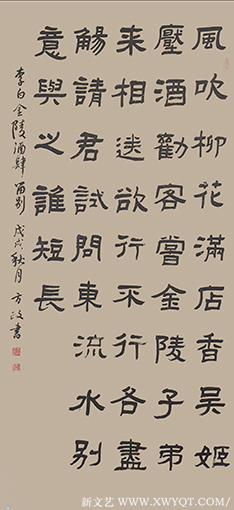 風吹柳花滿店香吳姬
壓酒勸客嘗金陵子弟
来相送欲行不行各盡
觴請君試問東流水别
意與之誰短長
李白金陵酒肆留别 戊戌秋月方政書
新文艺 WWW.XWYQT.COM